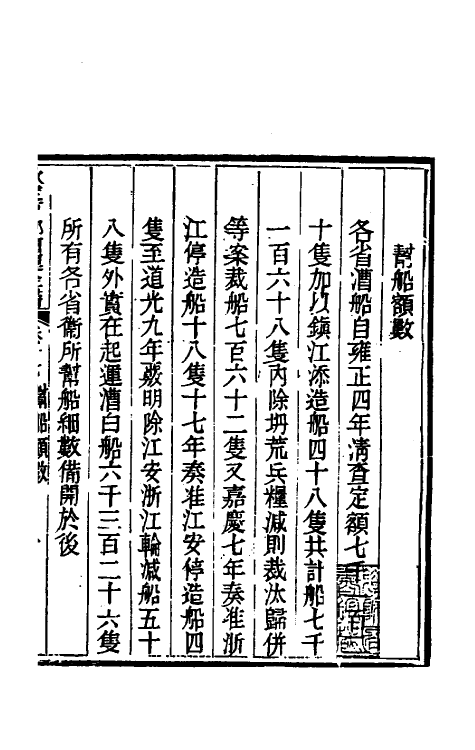 幫船額數
各省漕船自雍正四年淸查定額七千一百二
十隻加以鎮江添造船四十八隻共計船七千
一百六十八隻內除坍荒兵糧減則裁汰歸併
等案裁船七百六十二隻又嘉慶七年奏准浙
江停造船十八隻十七年奏准江安停造船四
隻至道光九年覈明除江安浙江輪減船五十
八隻外實在起運漕白船六千三百二十六隻
所有各省衞所幫船細數備開於後
幫船額數